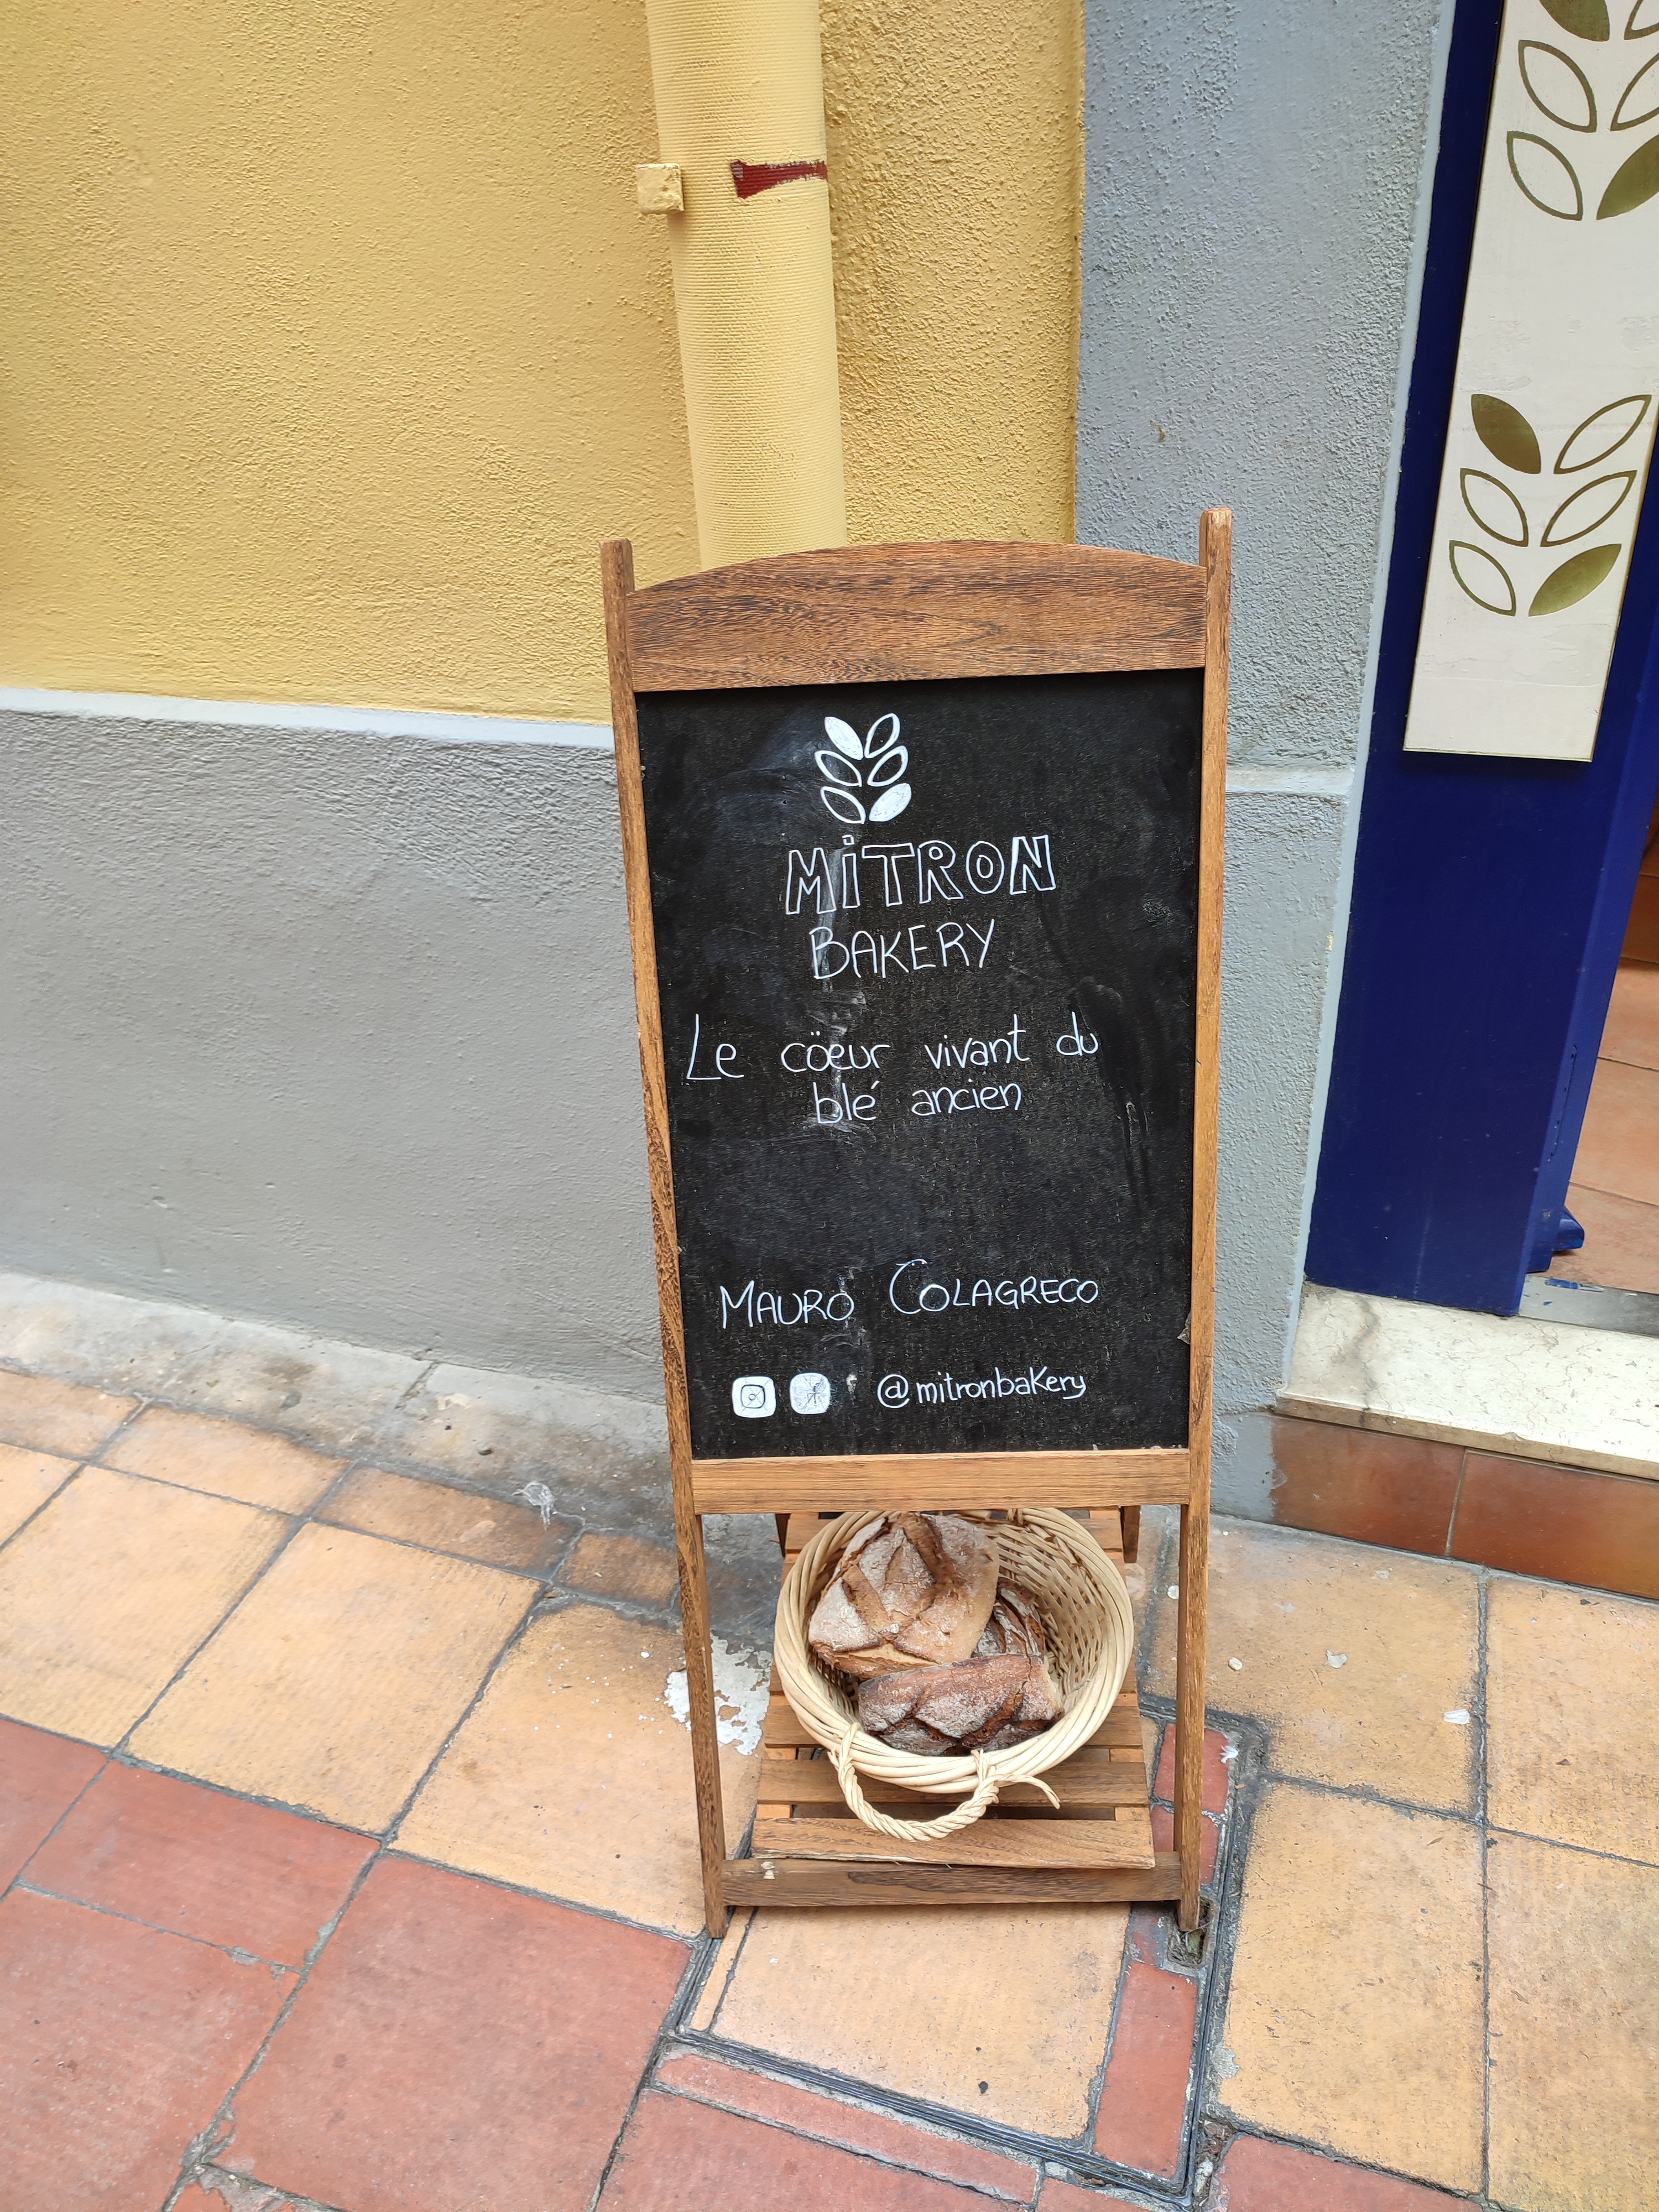 MiTRON
BAKERY
Le cöeur vivant du
blé ancien
MAURO COLAGRECO
@mitronbakery